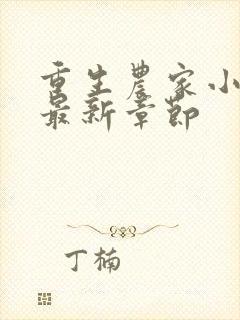 重生农家小
最新章节
丁楠